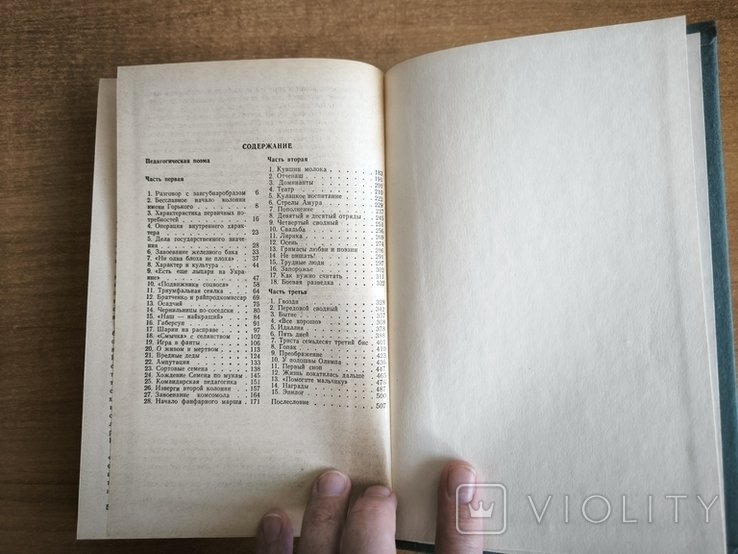 СОДЕРЖАНИЕ
Педагогическая поэма
Часть первая
1. Разговор с завгубнаробразом 6
2. Бесславное начало колонии
имени Горького . . . 8
3. Характеристика первичных по-
требностей . . . 16
4. Операция внутреннего харак-
тера . . . 23
5. Дела государственного значе-
ния . . . 28
6. Завоевание железного бака . 33
7. «Ни одна блоха не плоха» . 37
8. Характер и культура . . 44
9. «Есть еще лыцари на Укра-
ине» . . . 47
10. «Подвижники соцвоса» . 58
11. Триумфальная сеялка . 64
12. Братченко и райпродкомиссар 69
13. Осадчий . . . 75
14. Чернильницы по-соседски . 80
15. «Наш — найкращий» . . 84
16. Габерсуп . . . 91
17. Шарин на расправе . . 97
18. «Смычка» с селянством . 102
19. Игра в фанты . . . 106
20. О живом и мертвом . . 113
21. Вредные деды . . . 121
22. Ампутация . . . 133
23. Сортовые семена . . . 138
24. Хождение Семена по мукам 145
25. Командирская педагогика . 151
26. Изверги второй колонии . 157
27. Завоевание комсомола . 164
28. Начало фанфарного марша . 171
Часть вторая
1. Кувшин молока . . . 183
2. Отченаш . . . 191
3. Доминанты . . .
4. Театр . . . 210
5. Кулацкое воспитание . . .
6. Стрелы Амура . . . 229
7. Пополнение . . . 237
8. Девятый и десятый отряды .
9. Четвертый сводный . . .
10. Свадьба . . .
11. Лирика . . .
12. Осень . . .
13. Гримасы любви и поэзии .
14. Не пищать! . . .
15. Трудные люди . . .
16. Запорожье . . .
17. Как нужно считать . . .
18. Боевая разведка . . . 322
Часть третья
1. Гвозди . . . 328
2. Передовой сводный . . . 342
3. Бытие . . . 357
4. «Все хорошо» . . .
5. Идиллия . . .
6. Пять дней . . .
7. Триста семьдесят третий бис 401
8. Гопак . . .
9. Преображение . . .
10. У подошвы Олимпа . . .
11. Первый сноп . . .
12. Жизнь покатилась дальше 465
13. «Помогите мальчику» . 476
14. Награды . . . 487
15. Эпилог . . . 500
Послесловие . . . 507
VIOLITY